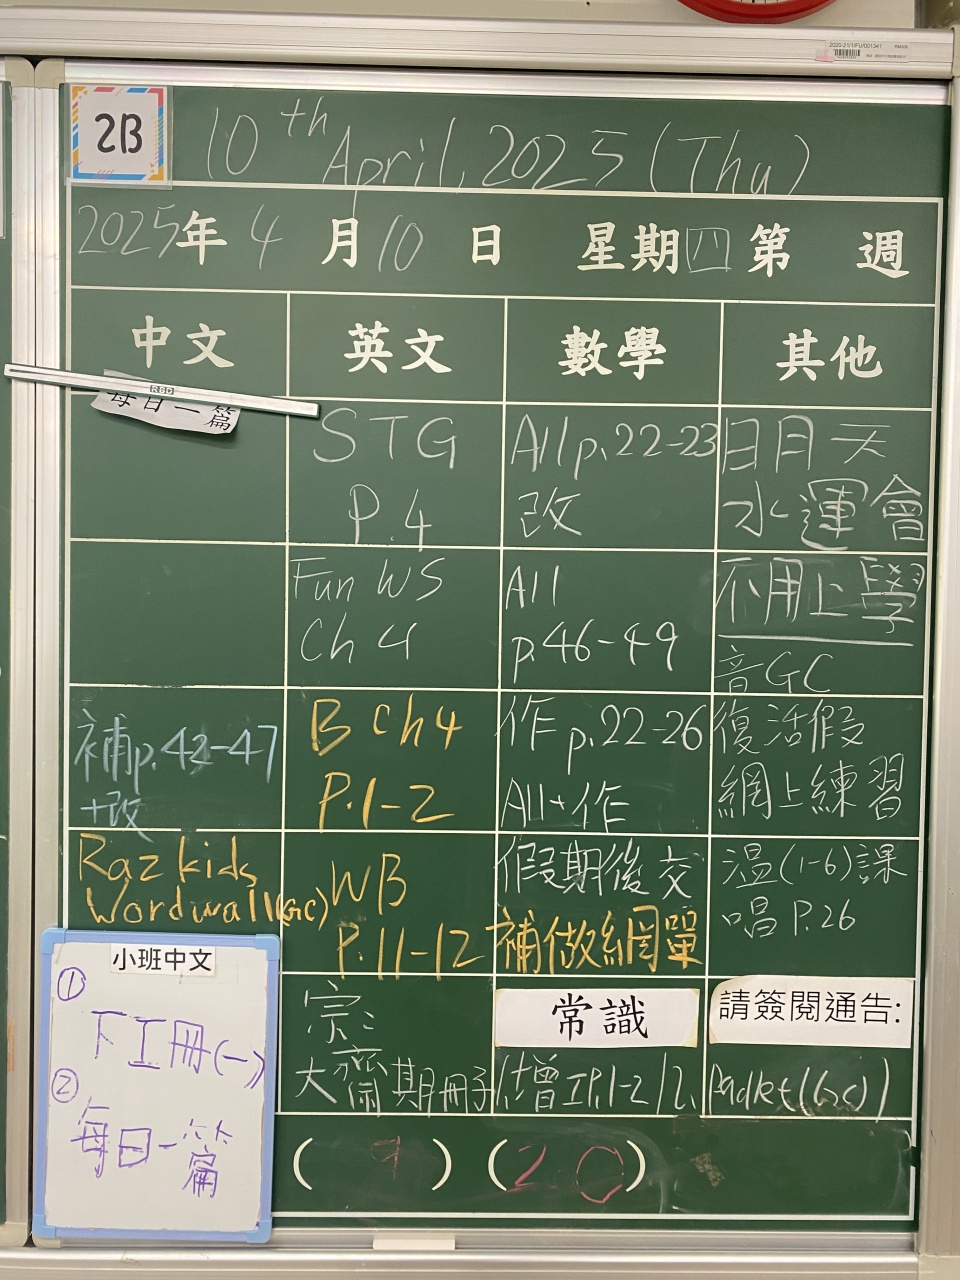 2B
10th April, 2025 (Thu)
2025年4月10日 星期四 第 週
中文 英文 數學 其他
每日一篇
STG
P.4
All p.22-23
改
日月天
水運會
Fun WS
Ch 4
All
p.46-49
不用上學
音GC
補p.42-47
+改
B Ch4
P.1-2
作 p.22-26
All+作
復活假
網上練習
Raz kids
Wordwall(GC)
WB
P.11-12
假期後交
補做網單
温(1-6)課
唱 P.26
小班中文
①
下工冊(一)
②
每日一篇
宗:
大齋期冊子
常識
增工P.1-2
請簽閱通告:
Padlet(GC)
( 9 ) (20)